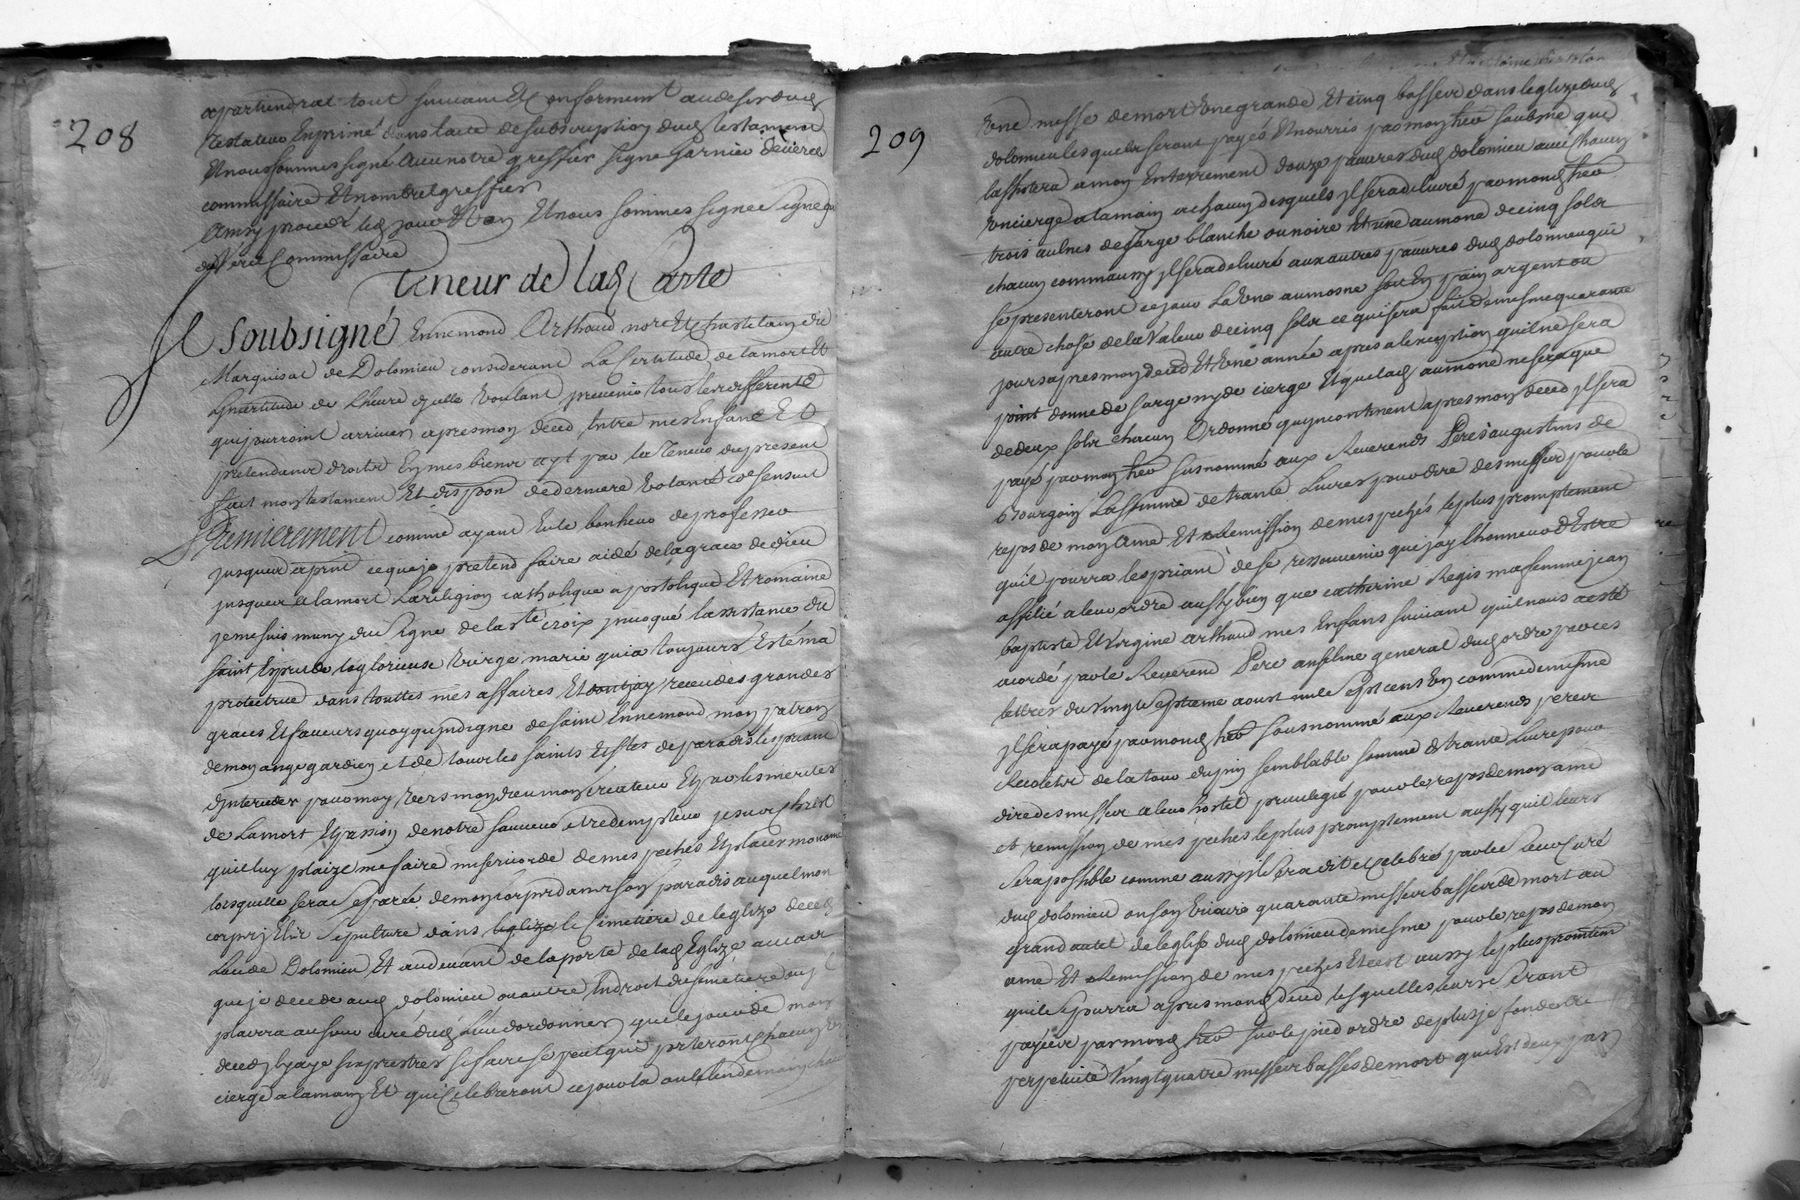 208
apartiendrat tout suivant Et conforment audesir dud
testateur Exprimé dans lacte de subscription dud testament
Et nous sommes signé avec notre greffier signe Garnier devieres
commissaire Et nombret greffier
Ainsy procedé led jour Et an Et nous sommes signee signe
de Viere Commissaire
Teneur de lad Carte
Je Soubsigné Ennemond Arthaud nore Et chastelain du
Marquisat de Dolomieu considerant La sertitude de lamort Et
Lincertitude de Lheure dycelle Voulant prevenir tous les differents
qui pourroint arriver apres mon deced Entre mes Enfans Et
pretendants droits En mes biens ayt par la Teneur du present
fait mon testament Et dispon de derniere Volonté co sensuit
Premierement comme ayant Eu le bonheur de professer
jusques apnt ce que je pretend faire aidé de la grace de dieu
jusques a lamort La religion catholique apostolique Et romaine
je me suis muny du signe de la ste croix jnvoqué lassistance du
saint Esprit de la glorieuse Vierge marie qui a toujours Esté ma
protectrice dans touttes mes affaires Et dont jay receu des grandes
graces Et faveurs quoyqu jndigne de saint Ennemond mon patron
de mon ange gardien et de tous les saints Et stes de paradis les priant
dinterceder pour moy Vers mon dieu mon créateur Et par les merites
de Lamort Et passion de notre sauveur et redempteur jesus christ
quil luy plaize me faire misericorde de mes pechés Et placer mon ame
lors quelle sera separée de mon corps dans son paradis auquel mon
corps jElis sepulture dans leglize le Cimetiere de leglize dud
Lieu de Dolomieu Et au devant de la porte de lad Eglize au cas
que je decede aud dolomieu ou autre Endroit du simetiere quil
plairra au sieur curé dud Lieu dordonner que le jour de mon
deced ly aye six prestres se faire se peut qui porteront chacun Un
cierge a la main Et qui Celebreront ce jour la ou le lendemain chacun
209
Une messe de mort Une grande Et cinq basses dans leglize dud
dolomieu lesquels seront payés Et nourris par mon her soubsne que
lassistera a mon Enterrement douze pauvres dud dolomieu avec chacun
Un cierge a la main a chacun desquels jl sera delivré par mond her
trois aulnes de sarge blanche ou noire Et Une aumone de cinq sols
chacun comme aussy jl sera delivré aux autres pauvres dud dolomieu qui
se presenteront ce jour La Une aumosne soit En pain argent ou
autre chose de la Valeur de cinq sols ce qui sera fait de mesme quarante
jours apres mon deced Et Une année apres a lexeption quil ne sera
point donné de sarge ny de cierge Et que lad aumone ne sera que
de deux sols chacun Ordonne quyncontinent apres mon deced jl sera
payé par mon her susnommé aux Reverends Peres augustins de
Bourgoin La somme de trante Livres pour dire des messes pour le
repos de mon ame Et Remission de mes pechés le plus promptement
quil pourra les priant de se ressouvenir que jay lhonneur dEstre
affilié a leur ordre aussy bien que catherine Regis ma femme jean
baptiste Et Virgine arthaud mes Enfans suivant quil nous a esté
acordé par le Reverend Pere anselme general dud ordre par ces
lettres du Vingt septieme aoust mil sept cens Un comme de mesme
jl sera payé par mond her sousnommé aux Reverends peres
Recoletz de la tour dupin semblable somme de trante Livres pour
dire des messes a leur hostel privilegié pour le repos de mon ame
et remission de mes peches le plus promptement aussy quil leurs
sera possible comme aussy jl sera dit et celebré par le sieur Curé
dud dolomieu ou son Vicaire quarante messes basses de mort au
grand autel de leglise dud dolomieu de mesme pour le repos de mon
ame Et Remission de mes peches Et cest aussy le plus promtem
quil se pourra apres mond deced lesquelles seront
payées par mond her sur le pied ordre de plus je fonde a
perpetuité Vingt quatre messes basses de mort qui Est deux par